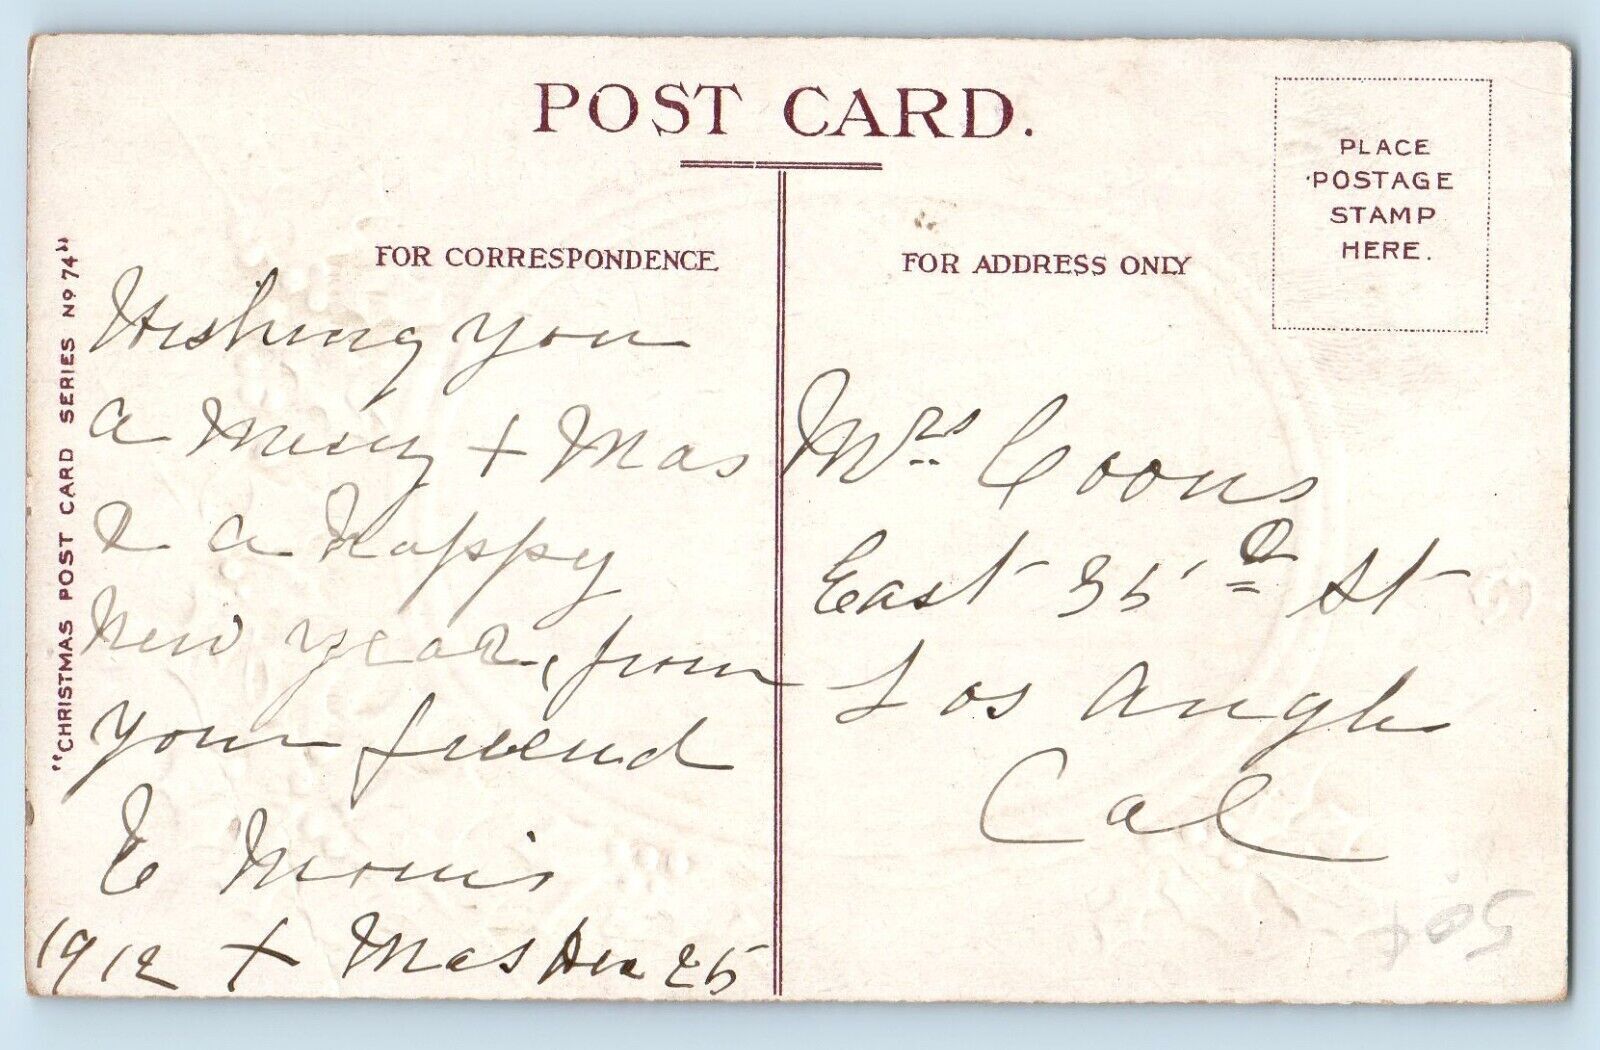 POST CARD.
PLACE
POSTAGE
STAMP
HERE.
FOR CORRESPONDENCE
FOR ADDRESS ONLY
"CHRISTMAS POST CARD SERIES No 74"
Wishing you
a Merry + Mas
& a Happy
New Year, from
your friend
E Morris
1912 + Mas Dec 25
Mrs Coons
East 35 St
Los Angls
Cal
50¢